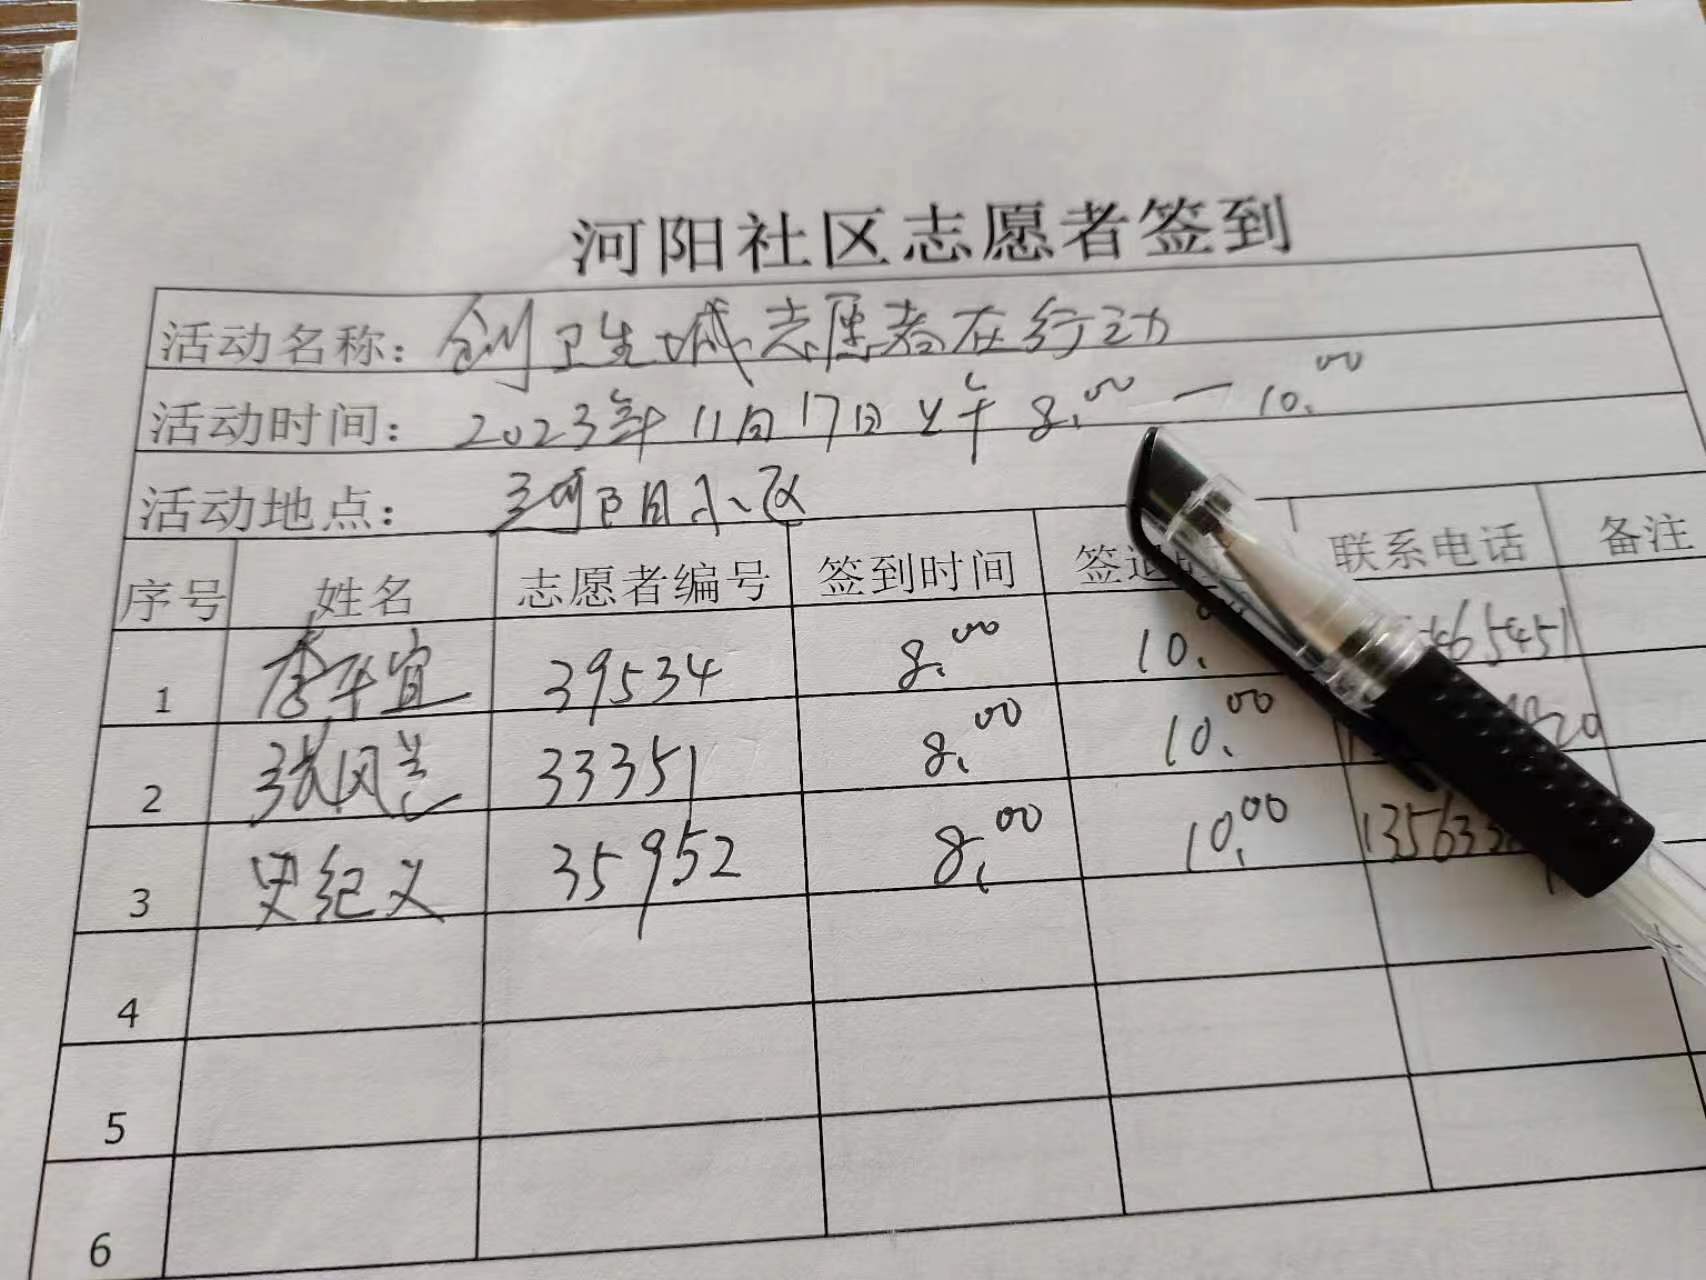 河阳社区志愿者签到
活动名称：创卫生城志愿者在行动
活动时间：2023年11月17日上午8.00—10.00
活动地点：河阳小区
序号 姓名 志愿者编号 签到时间 签退 联系电话 备注
1 李平宜 39534 8.00 10. 65451
2 张风兰 33351 8.00 10.00 20
3 史纪义 35952 8.00 10.00 135633
4
5
6